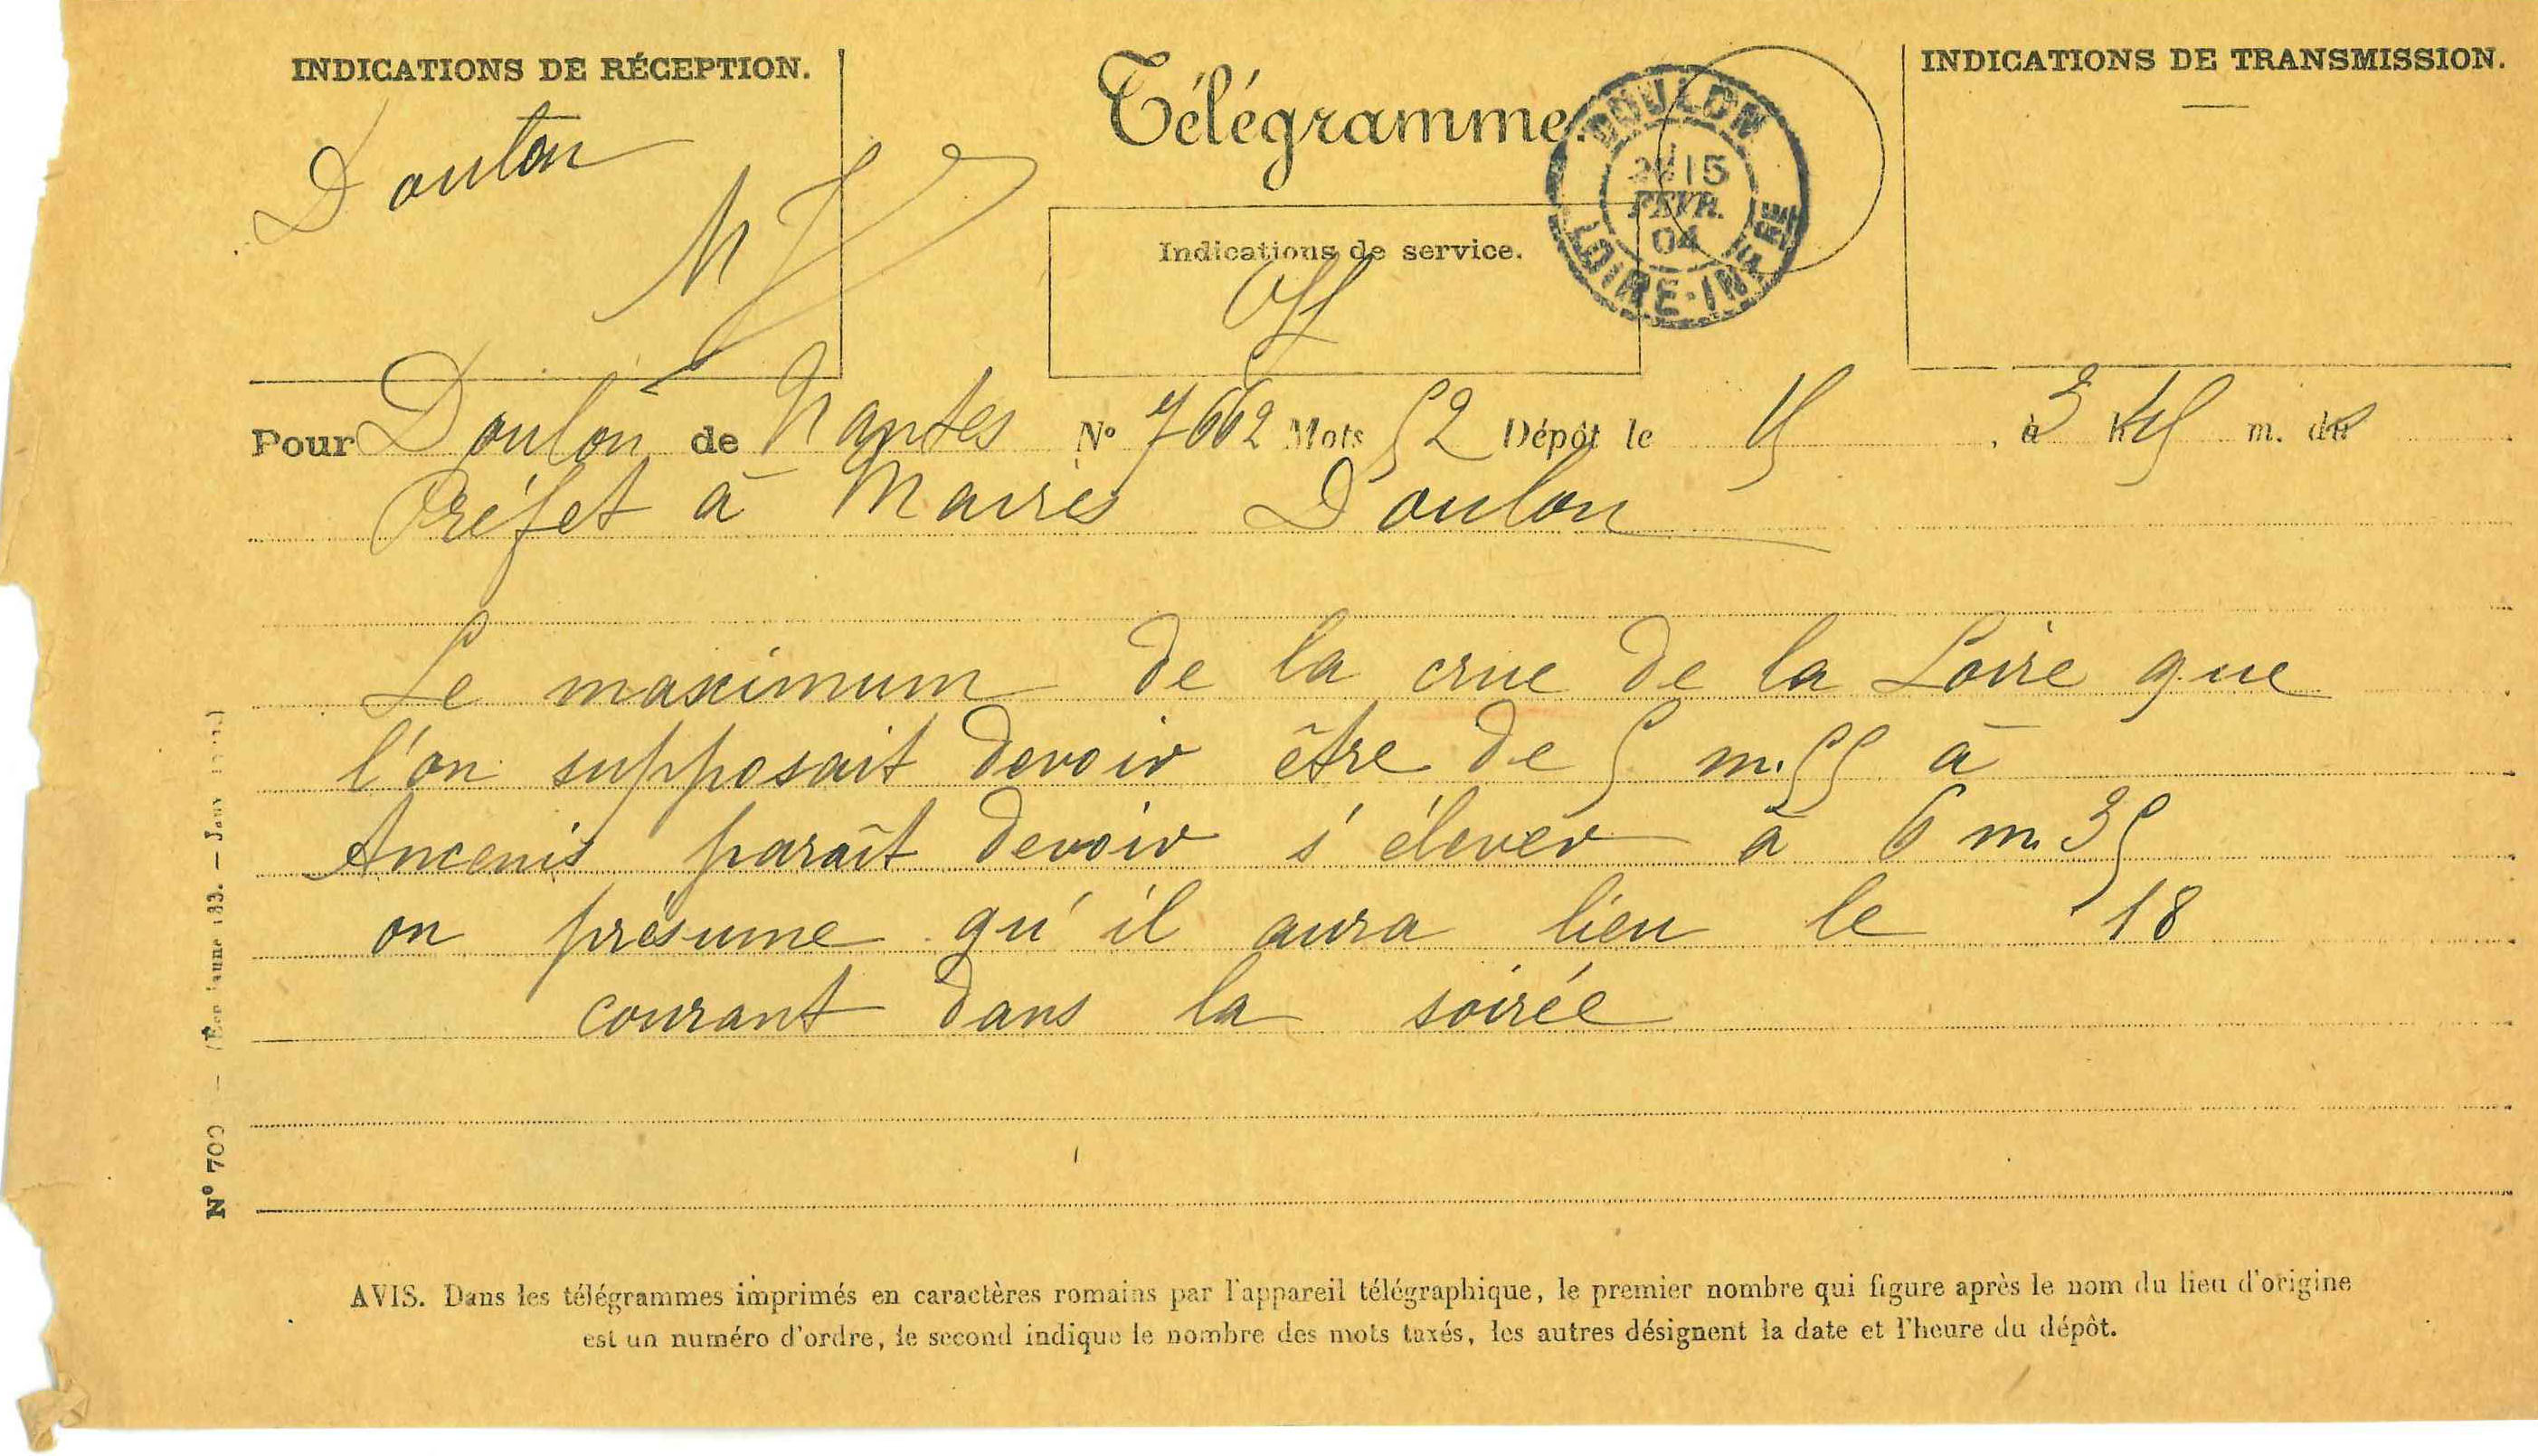 INDICATIONS DE RÉCEPTION.
Doulon
Télégramme.
Indications de service.
Off
DOULON
15
FÉVR.
04
LOIRE-INFRE
INDICATIONS DE TRANSMISSION.
Pour Doulon de Nantes N° 7662 Mots 52 Dépôt le 15 , à 3 h 45 m. du s
Préfet à Maires Doulon
Le maximum de la crue de la Loire que
l'on supposait devoir être de 5 m. 55 à
Ancenis paraît devoir s'élever à 6 m. 35
on présume qu'il aura lieu le 18
courant dans la soirée
N° 700
AVIS. Dans les télégrammes imprimés en caractères romains par l'appareil télégraphique, le premier nombre qui figure après le nom du lieu d'origine
est un numéro d'ordre, le second indique le nombre des mots taxés, les autres désignent la date et l'heure du dépôt.